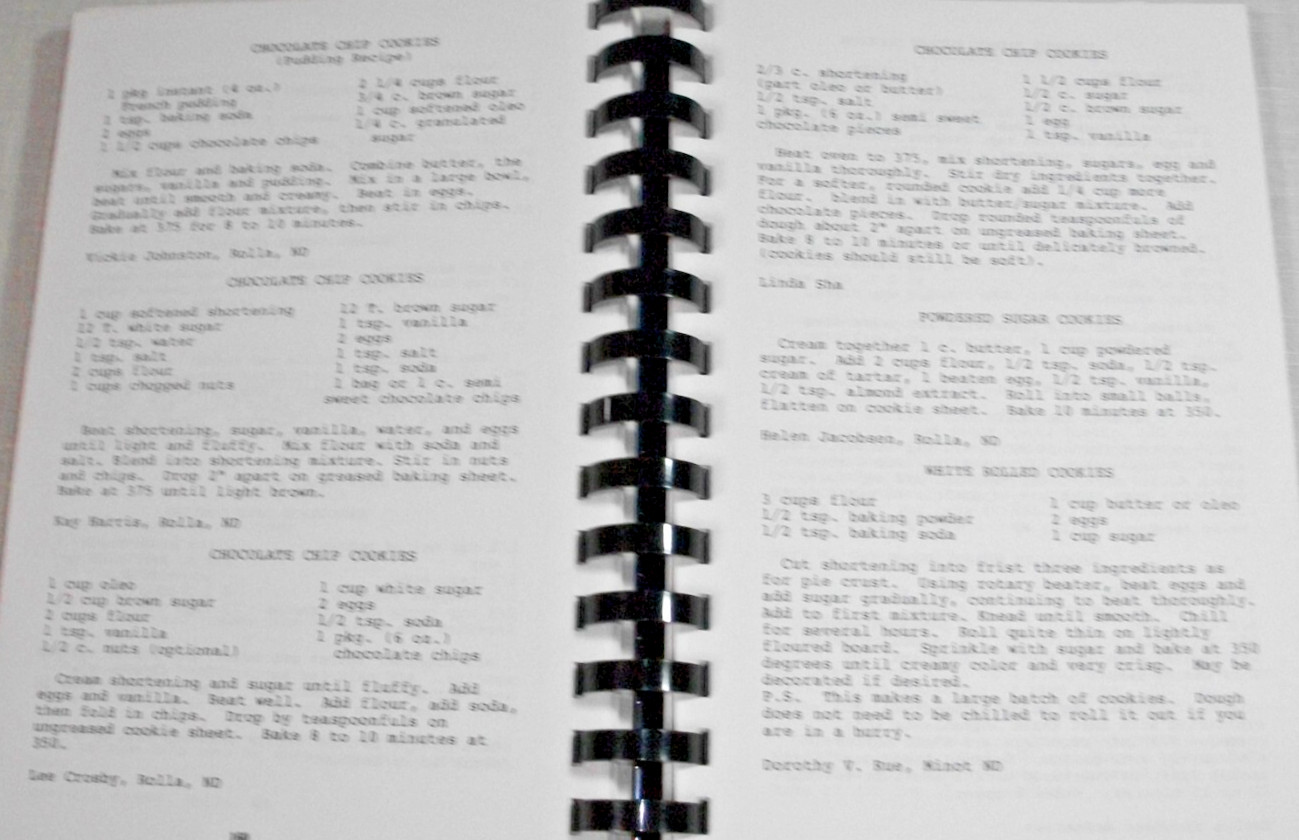 CHOCOLATE CHIP COOKIES
(Pudding Recipe)
1 pkg instant (4 oz.)
French pudding
1 tsp. baking soda
2 eggs
1 1/2 cups chocolate chips
2 1/4 cups flour
3/4 c. brown sugar
1 cup softened oleo
1/4 c. granulated
sugar
Mix flour and baking soda. Combine butter, the
sugars, vanilla and pudding. Mix in a large bowl,
beat until smooth and creamy. Beat in eggs.
Gradually add flour mixture, then stir in chips.
Bake at 375 for 8 to 10 minutes.
Vickie Johnston, Rolla, ND
CHOCOLATE CHIP COOKIES
1 cup softened shortening
12 T. white sugar
1/2 tsp. water
1 tsp. salt
2 cups flour
1 cups chopped nuts
12 T. brown sugar
1 tsp. vanilla
2 eggs
1 tsp. salt
1 tsp. soda
1 bag or 1 c. semi
sweet chocolate chips
Beat shortening, sugar, vanilla, water, and eggs
until light and fluffy. Mix flour with soda and
salt. Blend into shortening mixture. Stir in nuts
and chips. Drop 2" apart on greased baking sheet.
Bake at 375 until light brown.
Kay Harris, Rolla, ND
CHOCOLATE CHIP COOKIES
1 cup oleo
1/2 cup brown sugar
2 cups flour
1 tsp. vanilla
1/2 c. nuts (optional)
1 cup white sugar
2 eggs
1/2 tsp. soda
1 pkg. (6 oz.)
chocolate chips
Cream shortening and sugar until fluffy. Add
eggs and vanilla. Beat well. Add flour, add soda,
then fold in chips. Drop by teaspoonfuls on
ungreased cookie sheet. Bake 8 to 10 minutes at
350.
Lee Crosby, Rolla, ND
CHOCOLATE CHIP COOKIES
2/3 c. shortening
(part oleo or butter)
1/2 tsp. salt
1 pkg. (6 oz.) semi sweet
chocolate pieces
1 1/2 cups flour
1/2 c. sugar
1/2 c. brown sugar
1 egg
1 tsp. vanilla
Heat oven to 375, mix shortening, sugars, egg and
vanilla thoroughly. Stir dry ingredients together.
For a softer, rounded cookie add 1/4 cup more
flour. blend in with butter/sugar mixture. Add
chocolate pieces. Drop rounded teaspoonfuls of
dough about 2" apart on ungreased baking sheet.
Bake 8 to 10 minutes or until delicately browned.
(cookies should still be soft).
Linda Sha
POWDERED SUGAR COOKIES
Cream together 1 c. butter, 1 cup powdered
sugar. Add 2 cups flour, 1/2 tsp. soda, 1/2 tsp.
cream of tartar, 1 beaten egg, 1/2 tsp. vanilla,
1/2 tsp. almond extract. Roll into small balls,
flatten on cookie sheet. Bake 10 minutes at 350.
Helen Jacobsen, Rolla, ND
WHITE ROLLED COOKIES
3 cups flour
1/2 tsp. baking powder
1/2 tsp. baking soda
1 cup butter or oleo
2 eggs
1 cup sugar
Cut shortening into frist three ingredients as
for pie crust. Using rotary beater, beat eggs and
add sugar gradually, continuing to beat thoroughly.
Add to first mixture. Knead until smooth. Chill
for several hours. Roll quite thin on lightly
floured board. Sprinkle with sugar and bake at 350
degrees until creamy color and very crisp. May be
decorated if desired.
P.S. This makes a large batch of cookies. Dough
does not need to be chilled to roll it out if you
are in a hurry.
Dorothy V. Rue, Minot ND